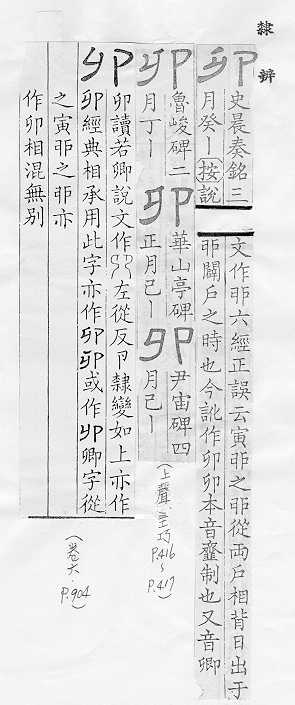 隸辨
卯
史晨奏銘三
月癸丨按說
文作戼六經正誤云寅戼之戼從兩戶相背日出于
戼闢戶之時也今訛作卯卯本音𧯷制也又音卿
卯
魯峻碑二
月丁丨
卯
華山亭碑
正月己丨
卯
尹宙碑四
月己丨
(上聲, 巧
P.416~
P.417)
卯
卯讀若卿說文作𠨍左從反卪隸變如上亦作
卯經典相承用此字亦作卯卯或作卯卿字從
之寅戼之戼亦
作卯相混無別
(卷六, P.904)